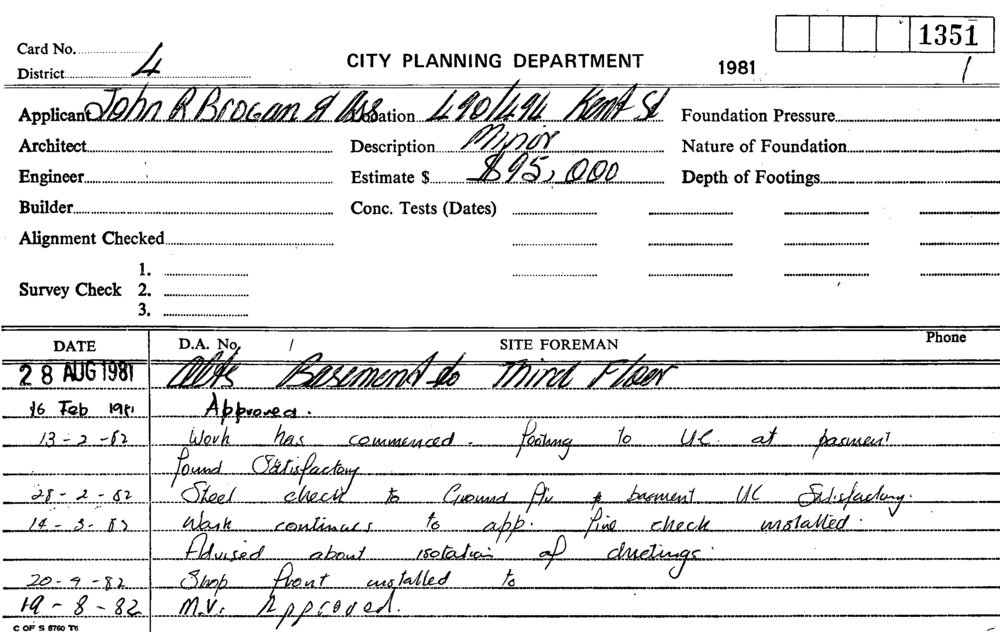 1351
Card No.
District 4
CITY PLANNING DEPARTMENT
1981 /
Applicant John R Brogan & Ass Location 490/494 Kent St Foundation Pressure
Architect Description Minor Nature of Foundation
Engineer Estimate $ $95,000 Depth of Footings
Builder Conc. Tests (Dates)
Alignment Checked
1.
Survey Check 2.
3.
DATE D.A. No. SITE FOREMAN Phone
28 AUG 1981 Alts Basement to Third Floor
16 Feb Approved.
13-2-82 Work has commenced. footing to UC at basment
found Satisfactory
28-2-82 Steel check to Ground Flr & basment UC Satisfactory.
14-3-82 Work continues to app. fire check installed.
Advised about isolation of ductings.
20-4-82 Shop front installed to
19-8-82 M.V. Approved.
C OF S 6760 T6